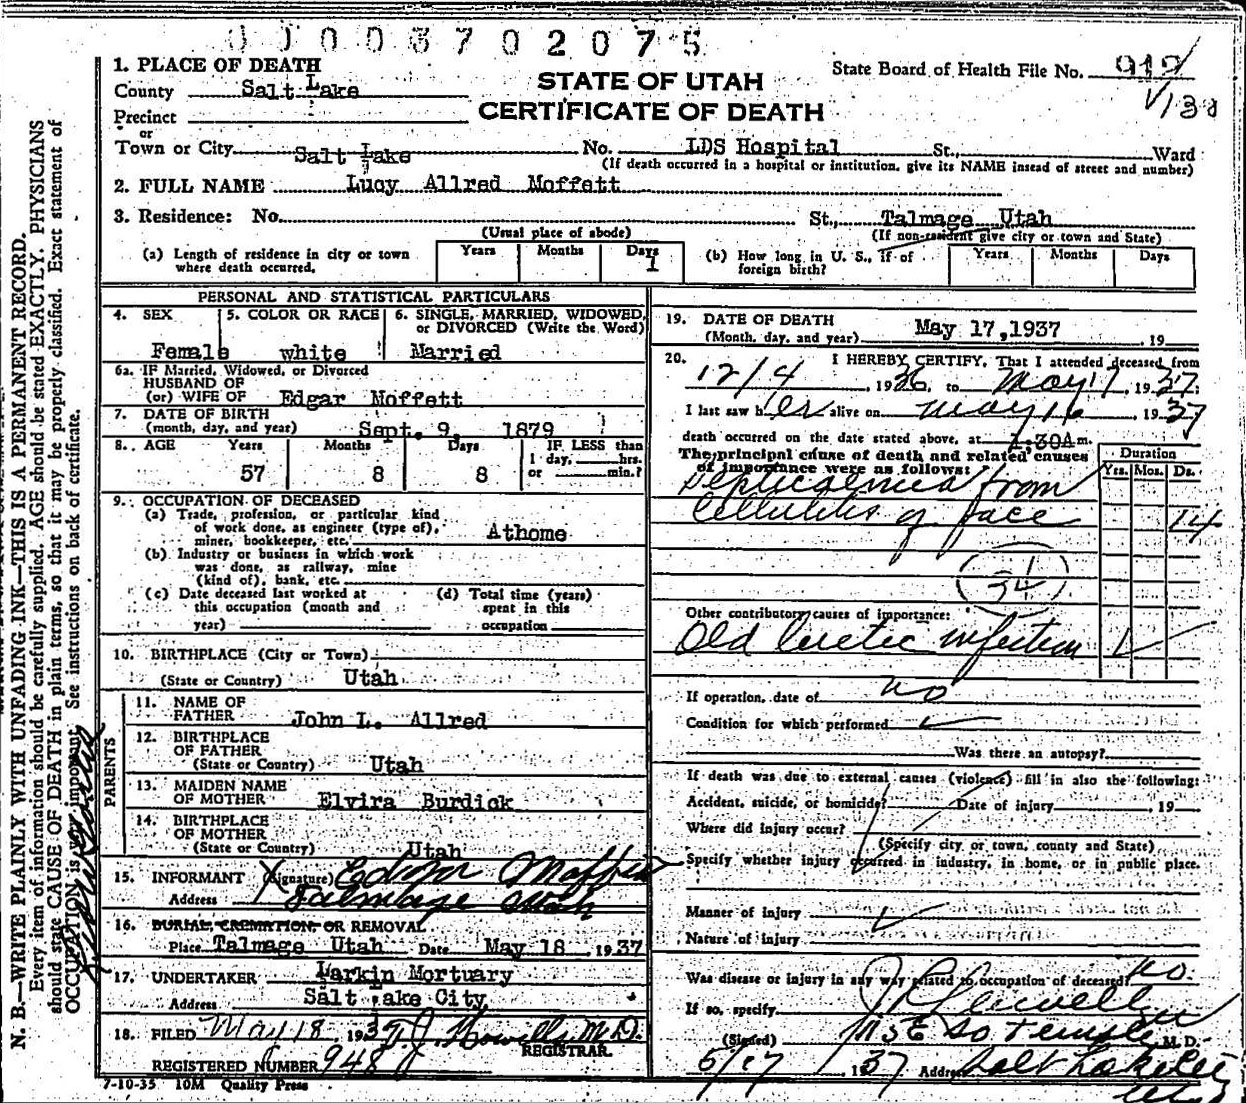 00003702075
1. PLACE OF DEATH
County Salt Lake
STATE OF UTAH
CERTIFICATE OF DEATH
State Board of Health File No. 919
Precinct
or
Town or City Salt Lake No. LDS Hospital St., Ward
(If death occurred in a hospital or institution, give its NAME insead of street and number)
2. FULL NAME Lucy Allred Moffett
3. Residence: No. St., Talmage Utah
(Usual place of abode) (If non-resident give city or town and State)
(a) Length of residence in city or town where death occurred. Years Months Days 1
(b) How long in U. S., if of foreign birth? Years Months Days
PERSONAL AND STATISTICAL PARTICULARS
4. SEX Female
5. COLOR OR RACE white
6. SINGLE, MARRIED, WIDOWED, or DIVORCED (Write the Word) Married
6a. IF Married, Widowed, or Divorced
HUSBAND OF
(or) WIFE OF Edgar Moffett
7. DATE OF BIRTH
(month, day, and year) Sept. 9, 1879
8. AGE Years Months Days IF LESS than
1 day, hrs.
or min.?
57 8 8
9. OCCUPATION OF DECEASED
(a) Trade, profession, or particular kind
of work done, as engineer (type of),
miner, bookkeeper, etc. Athome
(b) Industry or business in which work
was done, as railway, mine
(kind of), bank, etc.
(c) Date deceased last worked at
this occupation (month and
year)
(d) Total time (years)
spent in this
occupation
10. BIRTHPLACE (City or Town)
(State or Country) Utah
PARENTS
11. NAME OF
FATHER John L. Allred
12. BIRTHPLACE
OF FATHER
(State or Country) Utah
13. MAIDEN NAME
OF MOTHER Elvira Burdick
14. BIRTHPLACE
OF MOTHER
(State or Country) Utah
15. INFORMANT (Signature) Edgar Moffett
Address Talmage Utah
16. BURIAL, CREMATION, OR REMOVAL
Place Talmage Utah Date May 18 1937
17. UNDERTAKER Larkin Mortuary
Address Salt Lake City
18. FILED May 18, 193 T. J. Howells M.D.
REGISTRAR.
REGISTERED NUMBER 948
7-10-35 10M Quality Press
19. DATE OF DEATH
(Month, day, and year) May 17,1937 19
20. I HEREBY CERTIFY, That I attended deceased from
12/4, 1936, to May 17, 1937:
I last saw her alive on May 16, 1937
death occurred on the date stated above, at 1:30A m.
The principal cause of death and related causes
of importance were as follows: Duration
Yrs. Mos. Ds.
Septicaemia from
Cellulitis of face 14
Other contributory causes of importance:
Old Luetic infection
If operation, date of no
Condition for which performed
Was there an autopsy?
If death was due to external causes (violence) fill in also the following:
Accident, suicide, or homicide? Date of injury , 19
Where did injury occur?
(Specify city or town, county and State)
Specify whether injury occurred in industry, in home, or in public place.
Manner of injury
Nature of injury
Was disease or injury in any way related to occupation of deceased? no.
If so, specify
(Signed) M. D.
115 E So Temple
5/17 1937 Address Salt Lake City
Utah
N. B.—WRITE PLAINLY WITH UNFADING INK—THIS IS A PERMANENT RECORD.
Every item of information should be carefully supplied. AGE should be stated EXACTLY. PHYSICIANS
should state CAUSE OF DEATH in plain terms, so that it may be properly classified. Exact statement of
OCCUPATION is very important. See instructions on back of certificate.